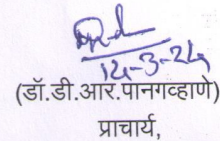 12-3-24
(डॉ.डी.आर.पानगव्हाणे)
प्राचार्य,